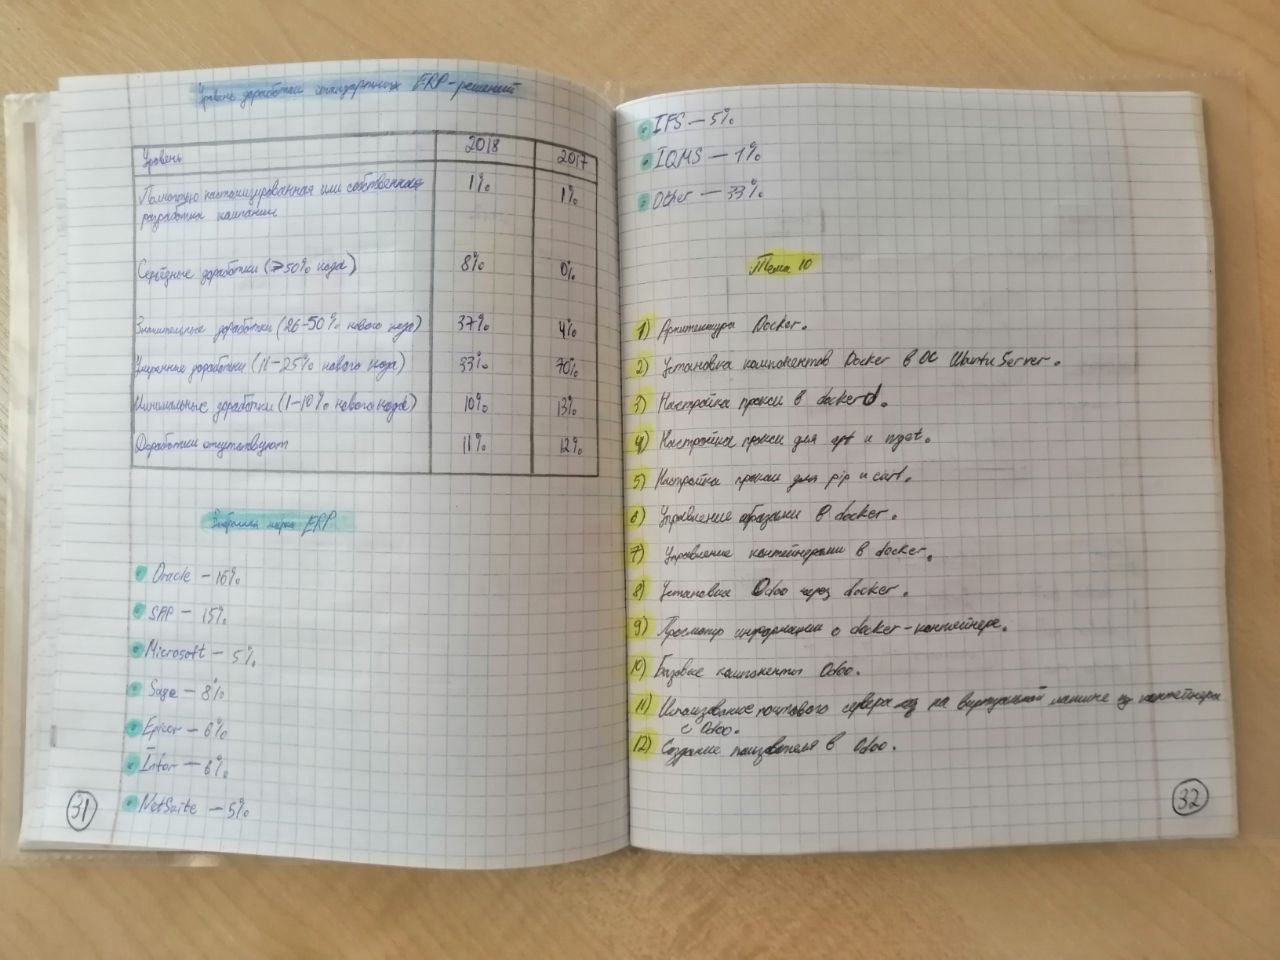 Уровень доработки стандартных ERP-решений
Уровень 2018 2017
Полностью кастомизированная или собственная 1% 1%
разработка компании
Серьёзные доработки (>50% кода) 8% 0%
Значительные доработки (26-50% нового кода) 37% 4%
Умеренные доработки (11-25% нового кода) 33% 70%
Минимальные доработки (1-10% нового кода) 10% 13%
Доработки отсутствуют 11% 12%
ERP
Oracle - 16%
SAP - 15%
Microsoft - 5%
Sage - 8%
Epicor - 6%
Infor - 6%
NetSuite - 5%
31
IFS - 5%
IQMS - 1%
Other - 33%
Тема 10
1) Архитектура Docker.
2) Установка компонентов Docker в ОС Ubuntu Server.
3) Настройка прокси в dockerd.
4) Настройка прокси для apt и wget.
5) Настройка прокси для pip и curl.
6) Управление образами в docker.
7) Управление контейнерами в docker.
8) Установка Odoo через docker.
9) Просмотр информации о docker-контейнере.
10) Базовые компоненты Odoo.
11) почтового сервера на виртуальной машине из контейнера
с Odoo.
12) Создание в Odoo.
32